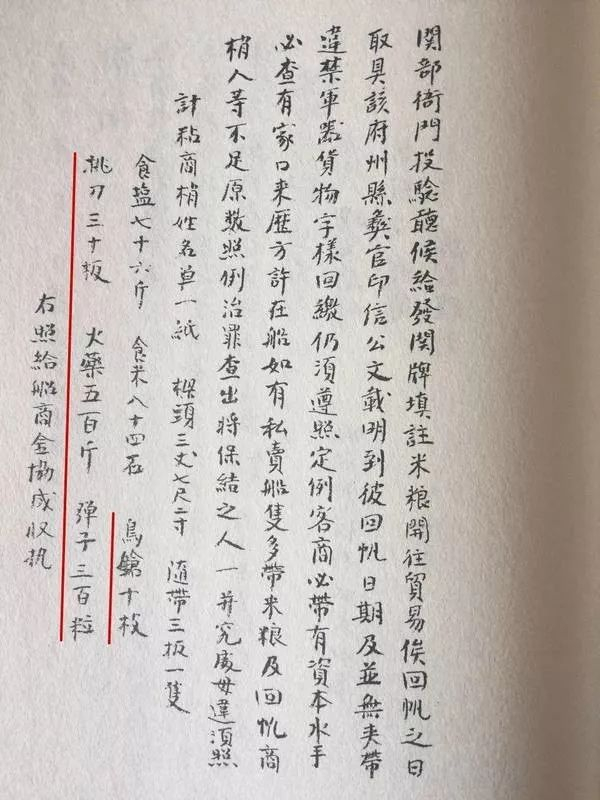 関部衙門投驗聽候給發関牌填註米粮開往貿易俟回帆之日
取具該府州縣彝官印信公文載明到彼回帆日期及並無夹帶
違禁軍器貨物字樣回繳仍須遵照定例客商必帶有資本水手
必查有家口来歷方許在船如有私賣船隻多帶米粮及回帆商
梢人等不足原数照例治罪查出将保结之人一并究處毋違須照
計粘商梢姓名单一紙 樑頭三丈七尺二寸 隨帶三板一隻
食塩七十六斤 食米八十四石 鳥鎗十枝
挑刀三十板 火藥五百斤 彈子三百粒
右照給船商金協成収执